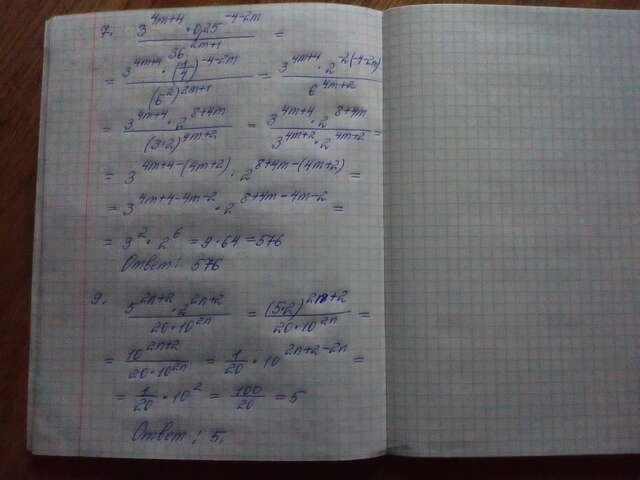 7. (3^(4m+4) · 0,25^(-4-2m)) / 36^(2m+1) =
= (3^(4m+4) · (1/4)^(-4-2m)) / (6^2)^(2m+1) = (3^(4m+4) · 2^(-2(-4-2m))) / 6^(4m+2)
= (3^(4m+4) · 2^(8+4m)) / (3·2)^(4m+2) = (3^(4m+4) · 2^(8+4m)) / (3^(4m+2) · 2^(4m+2)) =
= 3^(4m+4-(4m+2)) · 2^(8+4m-(4m+2)) =
= 3^(4m+4-4m-2) · 2^(8+4m-4m-2) =
= 9^2 · 2^6 = 9·64 = 576
Ответ: 576
9. (5^(2n+2) · 2^(2n+2)) / (20·10^(2n)) = (5·2)^(2n+2) / (20·10^(2n)) =
= 10^(2n+2) / (20·10^(2n)) = 1/20 · 10^(2n+2-2n) =
= 1/20 · 10^2 = 100/20 = 5
Ответ: 5.